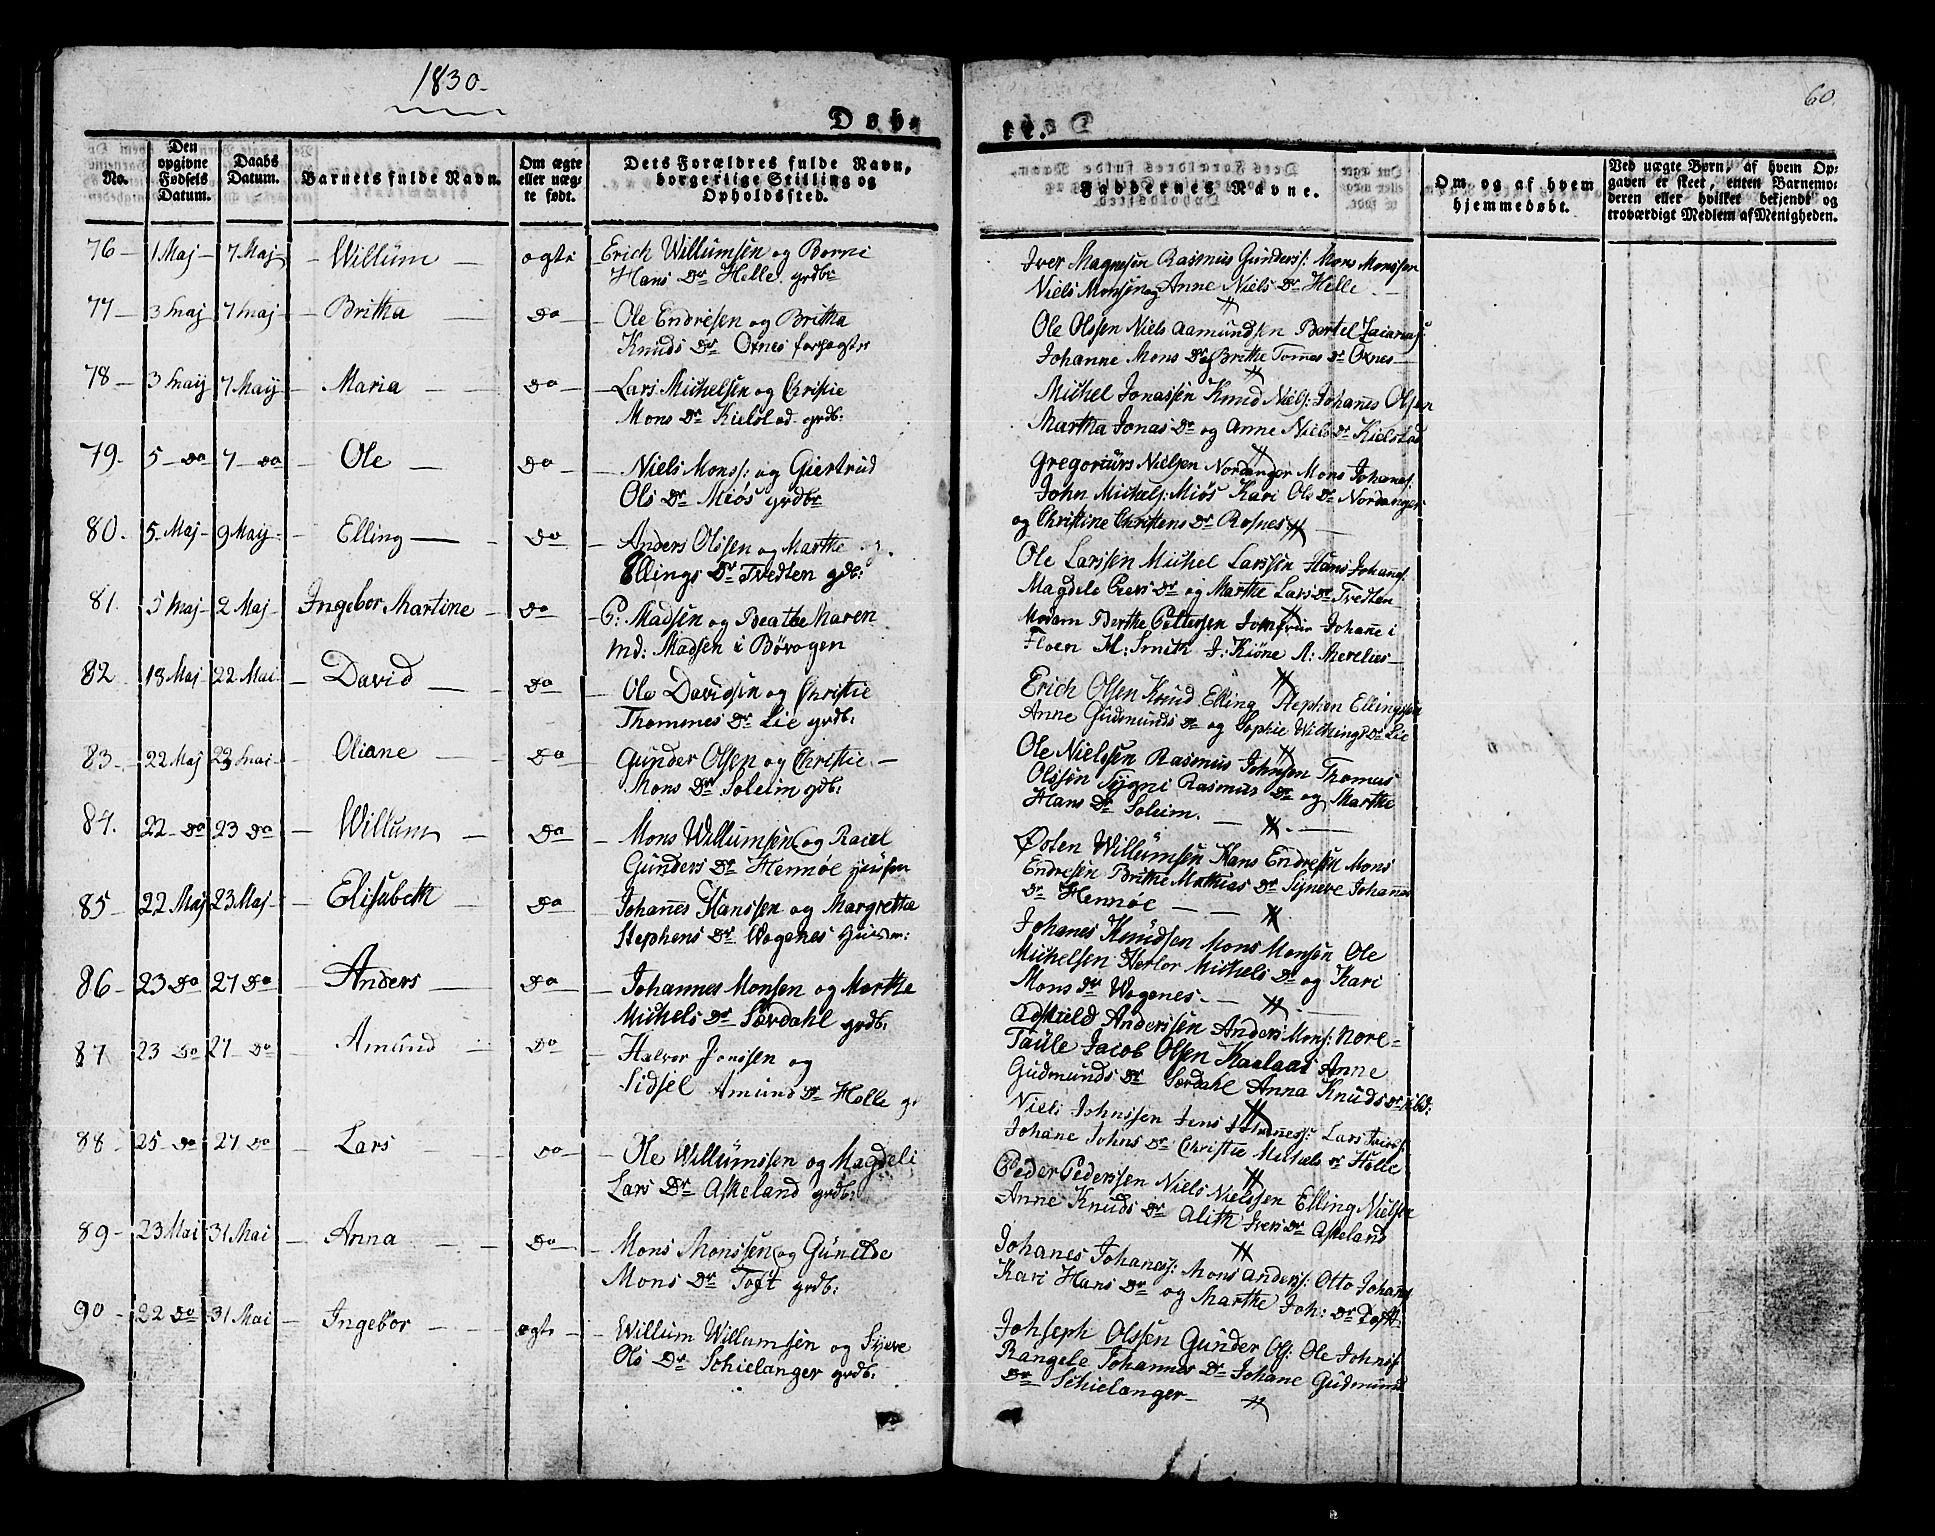 1830.
60.
Døbte.
No.
Den opgivne Fødsels Datum.
Daabs Datum.
Barnets fulde Navn.
Om ægte eller uægte født.
Dets Forældres fulde Navn, borgerlige Stilling og Opholdssted.
Faddernes Navne.
Om og af hvem hjemmedøbt.
Ved uægte Børn, af hvem Opgaven er skeet, enten Barnemoderen eller hvilket bekjendt og troværdigt Medlem af Menigheden.
76 - 1 Maj - 7 Maj - Willum - ægte
Erich Willumsen og Borni
Hans Dr Helle. grdbr
Iver Magnesen Rasmus Gunders: Mons Monssen
Niels Monsen og Anne Niels Dr Helle -
77 - 3 Maj 7 Maj - Britha - Do
Ole Endresen og Britha
Knuds Dr Oxnes forpagter
Ole Olssen Niels Aamundsen Bertel Zacarias:
Johanne Mons Dr og Brithe Tomes Dr Oxnes -
78 - 3 Maij 7 Maij - Maria - Do
Lars Michelsen og Christie
Mons Dr Kielstad grdb:
Michel Jonassen Knud Niels: Johanes Olsen
Martha Jonas Dr og Anne Niels Dr Kielstad
79. 5 - Do 7 - Do - Ole - Do
Niels Monss: og Giertrud
Ols Dr Miøs grdbr
Gregoriurs Nielsen Nordanger Mons Johanes:
John Michels: Miøs Kari Ole Dr Nordanger
og Christine Christens Dr Rosnes
80. 5 Maj - 9 Maij - Elling - Do
Anders Olssen og Marthe
Ellings Dr Tvedten gdb:
Ole Larssen Michel Larssen Hans Johanes:
Magdele Peers Dr og Marthe Lars Dr Tvedten
81. 5 Maj - 2 Maj - Ingebor Martine - Do
P: Madsen og Beathe Maren
Md: Madsen i Bøvogen
Madam Berthe Pettersen Jomfrue Johane i
Floen M: Smith J: Kiøne A: Merelies -
82 18 Maj 22 Mai - David - Do
Ole Davidsen og Christie
Thommes Dr Lie grdb:
Erich Olsen Knud Elling Stephen Ellingsen
Anne Gudmunds Dr og Sophie Wilkings Dr Lie
83. 22 Maj 23 Mai - Oliane - Do
Gunder Olsen og Christie -
Mons Dr Soleim gdb:
Ole Nielssen Rasmus Johnsen Thomas
Olssen Sygni Rasmus Dr og Marthe
Hans Dr Soleim.
84. 22 - Do 23 Do - Willum - Do
Mons Willumsen og Raciel
Gunders Dr Hennøe Huusm
Østen Willumsen Hans Endresen Mons
Endresen Brithe Mathias Dr Signeve Johanes
Dr Hennøe - -
85 - 22 Maj 23 Maj - Elisabeth - Do
Johanes Hanssen og Margrethe
Stephens Dr Wogenes Huusm:
Johanes Knudsen Mons Monsen Ole
Michelsen Herlor Michels Dr og Kari
Mons Dr Wogenes -
86 - 23 Do 27 Do - Anders - Do
Johannes Monsen og Marthe
Michels Dr Særdahl grdb:
Adskield Anderssen Anders Mons: Nore-
Taule Jacob Olsen Kaalaas Anne
Gudmunds Dr Særdahl Anna Knuds Dr ibd:
87 23 Do 27 Do - Amund - Do
Halvor Jonssen og
Sidsel Amund Dr Helle
Niels Johnssen Jens Johanes: Lars Jacob:
Johane Johns Dr Christie Michels Dr Helle
88 - 25 Do 27 Do - Lars - Do
Ole Willumssen og Magdeli
Lars Dr Askeland grdb:
Peder Pederssen Niels Nielssen Elling Nielsen
Anne Knuds Dr Alith Ivers Dr Askeland
89 - 23 Mai 31 Mai - Anna - Do
Mons Monssen og Gunilde
Mons Dr Toft grdb:
Johanes Johanes: Mons Anders: Otto Johanes
Kari Hans Dr og Marthe Joh: Dr Toft
90 - 22 Do 31 Mai - Ingebor - ægte
Willum Willumsen og Syneve
Ols Dr Schielanger grdb:
Johseph Olssen Gunder Ols: Ole Johns:
Rangele Johannes Dr Johane Gudmund
Dr Schielanger -